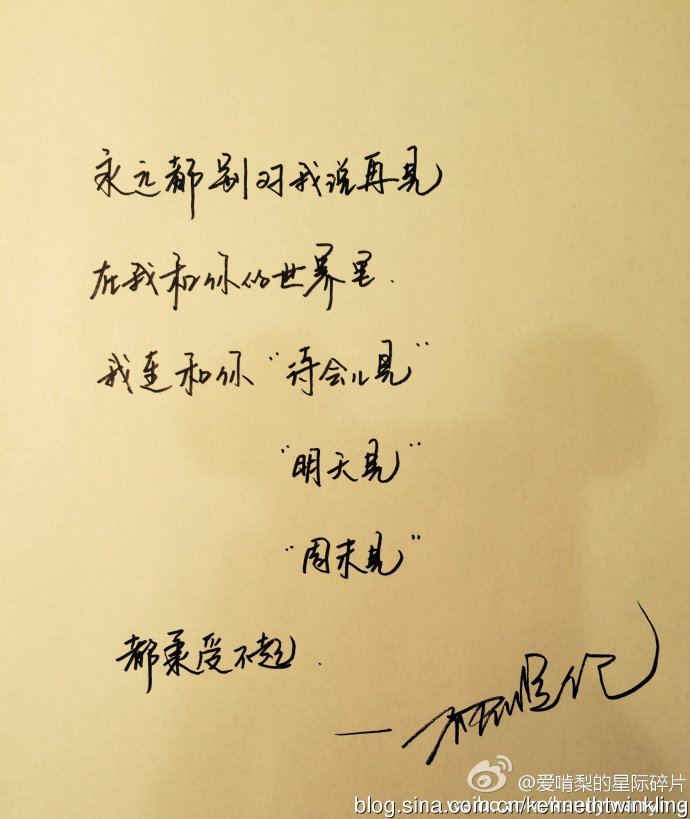 永远都别对我说再见
在我和你的世界里.
我连和你“待会儿见”
“明天见”
“周末见”
都承受不起.
@爱啃梨的星际碎片
blog.sina.com.cn/kennethtwinkling